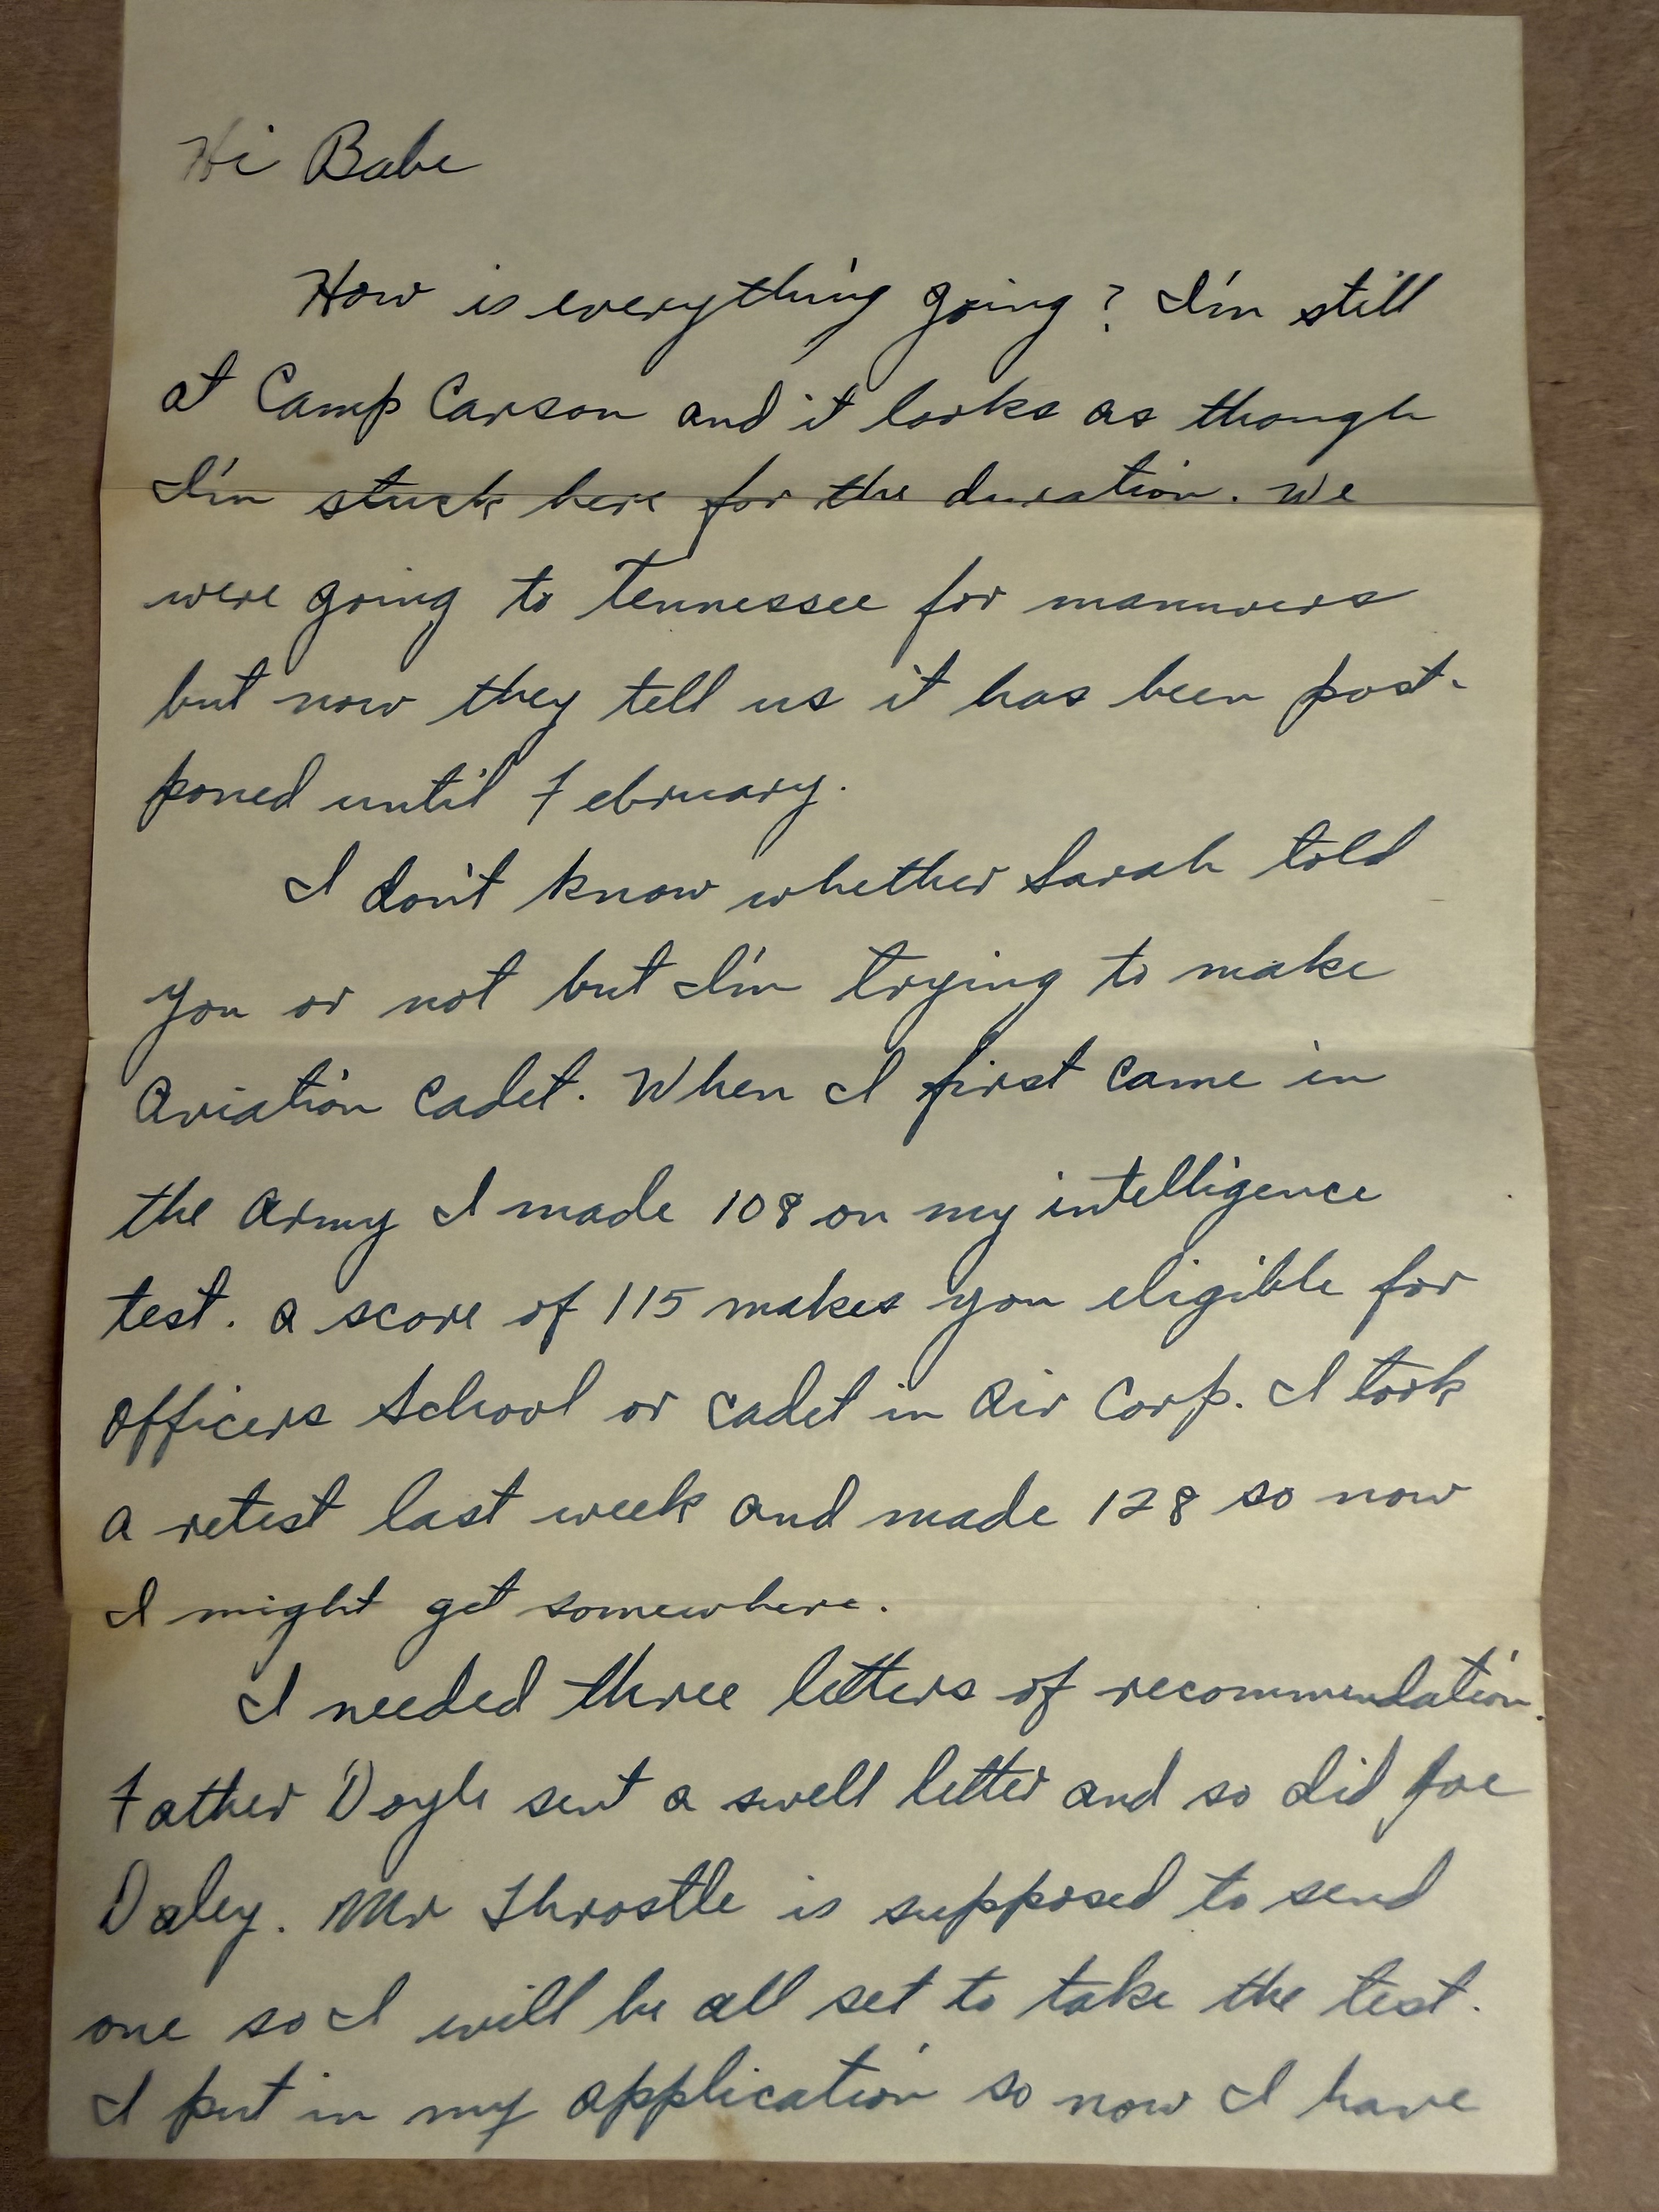 Hi Babe
How is everything going? I'm still
at Camp Carson and it looks as though
I'm stuck here for the duration. We
were going to Tennessee for manuvers
but now they tell us it has been post-
poned until February.
I don't know whether Sarah told
you or not but I'm trying to make
Aviation Cadet. When I first came in
the Army I made 108 on my intelligence
test. a score of 115 makes you eligible for
Officers School or Cadet in Air Corp. I took
a retest last week and made 128 so now
I might get somewhere.
I needed three letters of recommendation.
Father Doyle sent a swell letter and so did Joe
Daley. Mr Throstle is supposed to send
one so I will be all set to take the test.
I put in my application so now I have